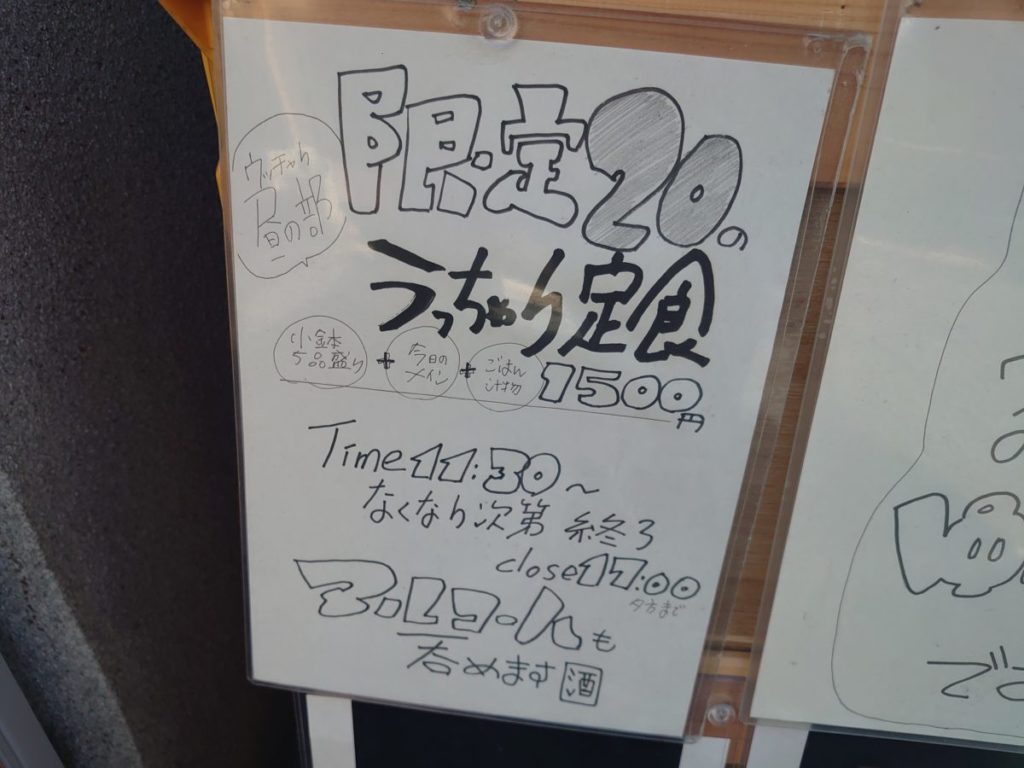 限定20の
ウッチャリ
昼の部
うっちゃり定食
小鉢
5品盛り
+
今日の
メイン
+
ごはん
汁物
1500円
Time 11:30〜
なくなり次第 終了
close 17:00
夕方まで
アルコールも
呑めます 酒